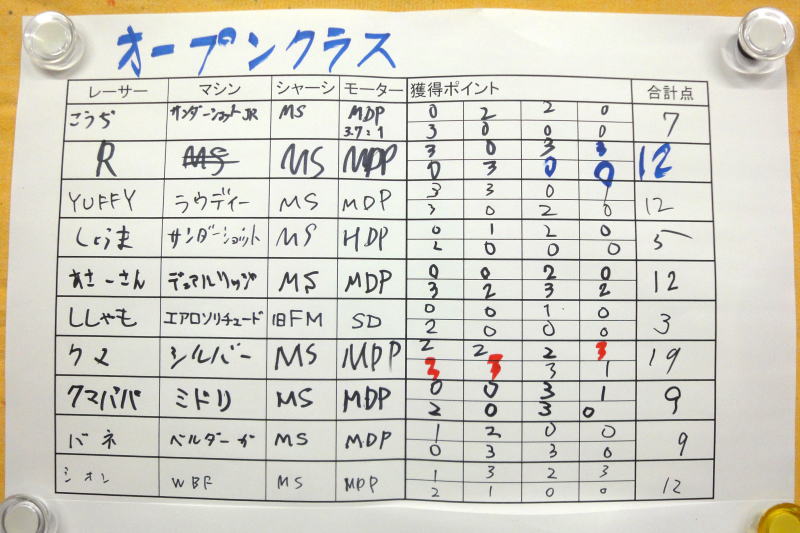 オープンクラス
レーサー マシン シャーシ モーター 獲得ポイント 合計点
こうぢ サンダーショットJR MS MDP 3.7:1 0 2 2 0 7
3 0 0 0
R MS MS MDP 3 0 3 3 12
0 3 0 0
YUFFY ラウディー MS MDP 3 3 0 1 12
3 0 2 0
しょうま サンダーショット MS HDP 0 1 2 0 5
2 0 0 0
あさーさん デュアルリッジ MS MDP 0 0 2 0 12
3 2 3 2
ししゃも エアロソリチュード 旧FM SD 0 0 1 0 3
2 0 0 0
クマ シルバー MS MDP 2 2 2 3 19
3 3 3 1
クマパパ ミドリ MS MDP 0 0 3 1 9
2 0 3 0
バネ ベルダーガ MS MDP 1 2 0 0 9
0 3 3 0
シオン WBF MS MDP 1 3 2 3 12
2 1 0 0